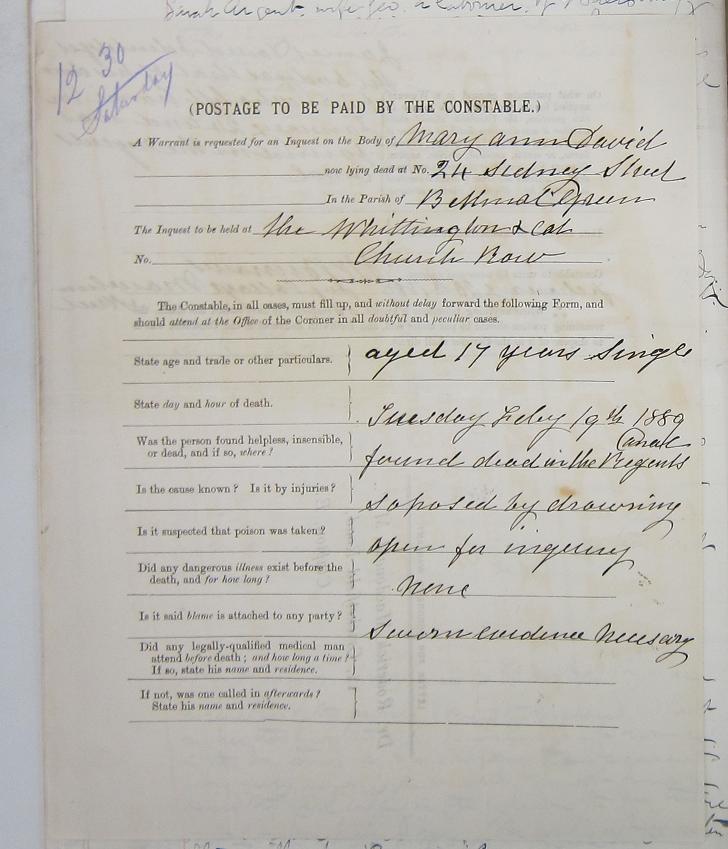 Sarah Argent. wife Geo. a Labourer. of
12 30
Saturday
(POSTAGE TO BE PAID BY THE CONSTABLE.)
A Warrant is requested for an Inquest on the Body of Mary ann David
now lying dead at No. 24 Sidney Street
In the Parish of Bethnal Green
The Inquest to be held at the Whittington & Cat
No. Church Row
The Constable, in all cases, must fill up, and without delay forward the following Form, and
should attend at the Office of the Coroner in all doubtful and peculiar cases.
State age and trade or other particulars. aged 17 years Single
State day and hour of death. Tuesday Feby 19th 1889
Was the person found helpless, insensible, Canal
or dead, and if so, where? found dead in the Regents
Is the cause known? Is it by injuries? soposed by drowning
Is it suspected that poison was taken? open for inqeury
Did any dangerous illness exist before the
death, and for how long? None
Is it said blame is attached to any party? Sworn evidence Nessesary
Did any legally-qualified medical man
attend before death; and how long a time?
If so, state his name and residence.
If not, was one called in afterwards?
State his name and residence.